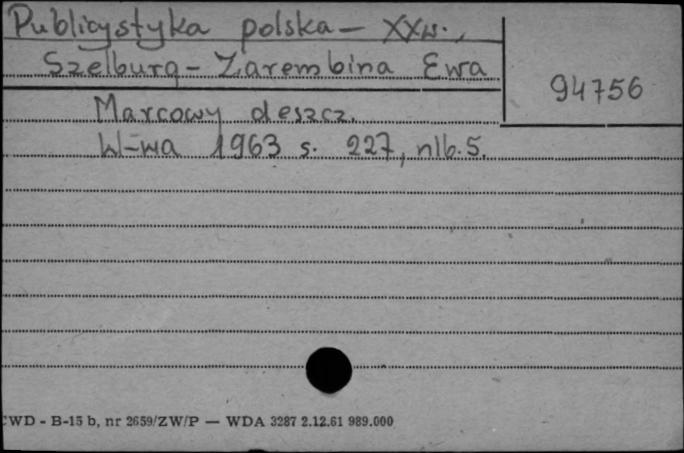 Publicystyka polska - XXw.,
Szelburg - Zarembina Ewa
94756
Marcowy deszcz.
W-wa 1963 s. 227, nlb. 5.
CWD - B-15 b, nr 2659/ZW/P — WDA 3287 2.12.61 989.000